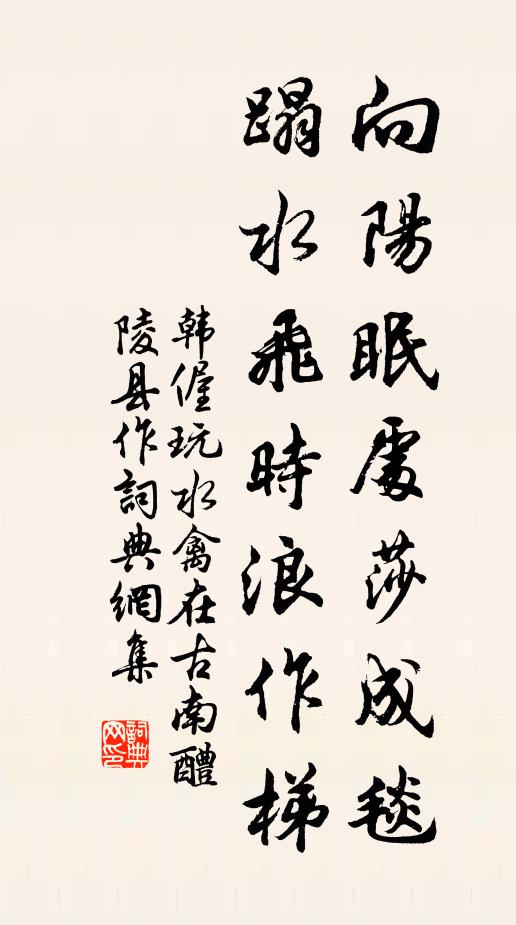 向陽眠處莎成毯
蹋水飛時浪作梯
韩偓玩水禽在古南醴
陵县作詞典網集
詞典网印